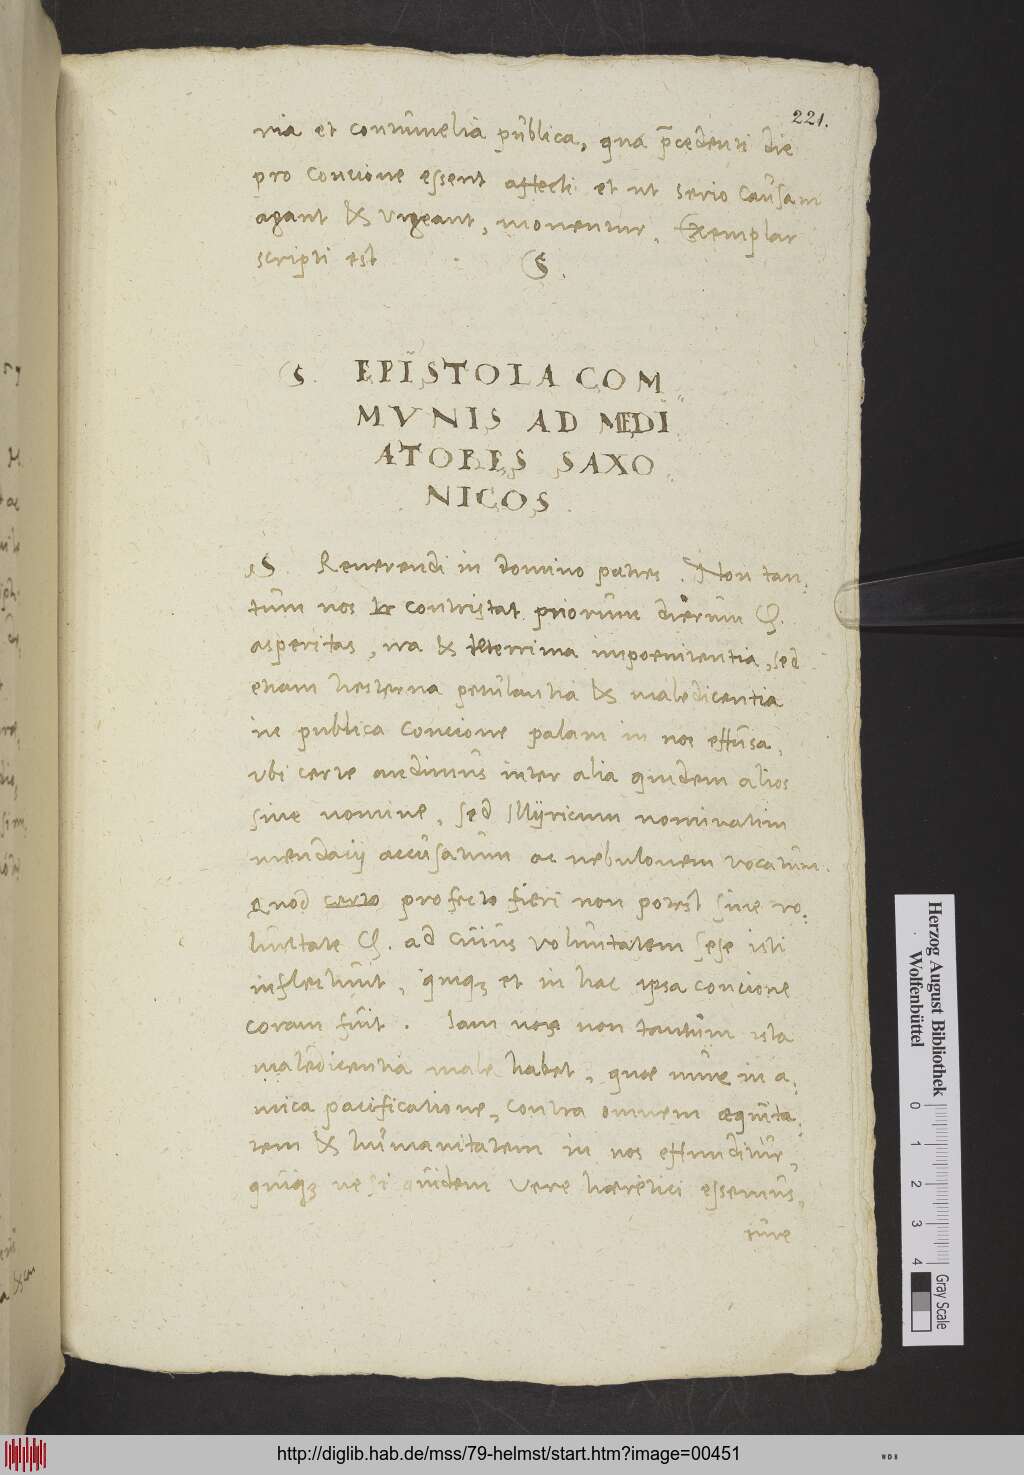 221.
ria et contumelia publica, qua p̄cedenti die
pro concione essent affecti et ut serio causam
agant & urgeant, monentur. Exemplar
scripti est S.
S. EPISTOLA COM
MVNIS AD MEDI
ATORES SAXO
NICOS
S. Reuerendi in domino patres. Non tan
tum nos contristat priorum dierum
asperitas, ira & teterrima impoenitentia, sed
etiam hesterna petulantia & maledicentia
in publica concione palam in nos effusa,
vbi certe audimus inter alia quidem alios
sine nomine, sed Illyricum nominatim
mendacij accusatum ac nebulonem vocatum.
Quod certo profecto fieri non potest sine vo
luntate ad cuius voluntatem sese isti
inflectunt, quiq; et in hac ipsa concione
coram fuit. Iam nos non tantum ista
maledicentia male habet, quae nunc in a
mica pacificatione, contra omnem aequita
tem & humanitatem in nos effunditur,
quiq; ne si quidem vere haeretici essemus,
iure
Herzog August Bibliothek
Wolfenbüttel
0 1 2 3 4
Gray Scale
http://diglib.hab.de/mss/79-helmst/start.htm?image=00451
WDB